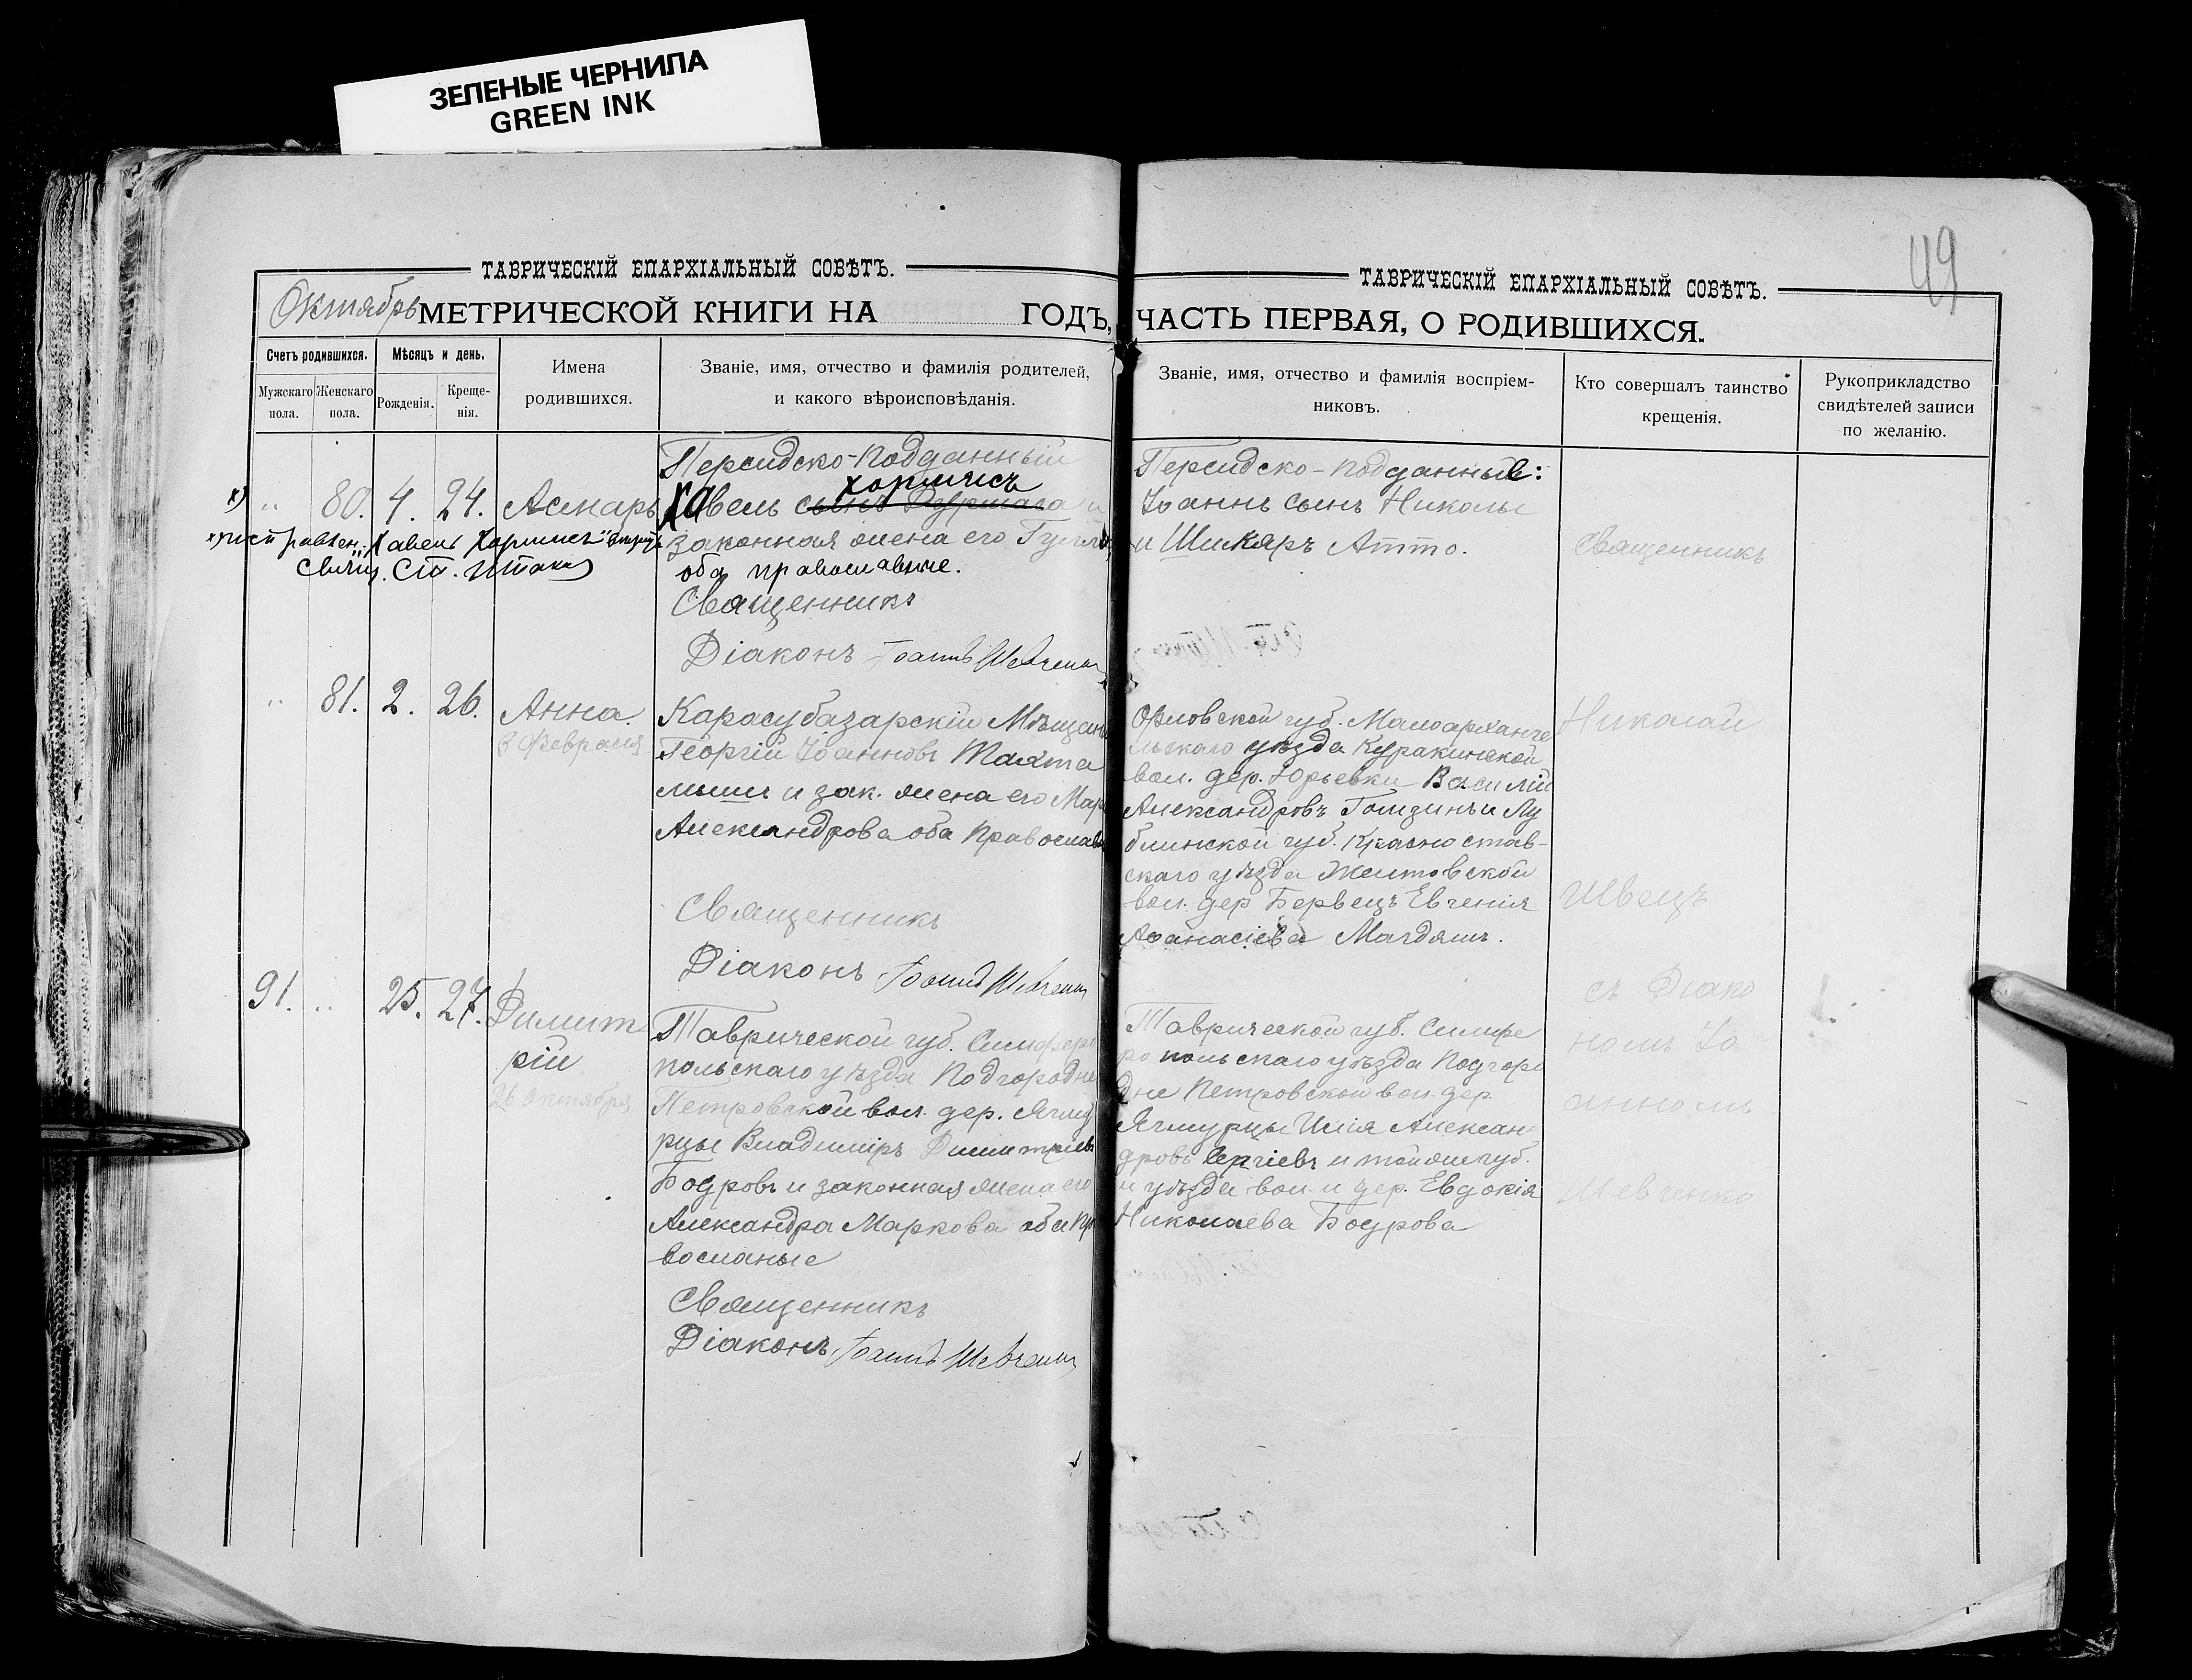 ЗЕЛЕНЫЕ ЧЕРНИЛА
GREEN INK
49
ТАВРИЧЕСКІЙ ЕПАРХІАЛЬНЫЙ СОВѢТЪ.
Октябрь МЕТРИЧЕСКОЙ КНИГИ НА ГОДЪ,
Счетъ родившихся.
Мужскаго пола.
Женскаго пола.
Мѣсяцъ и день.
Рожденія.
Креще-
нія.
Имена
родившихся.
Званіе, имя, отчество и фамилія родителей,
и какого вѣроисповѣданія.
ТАВРИЧЕСКІЙ ЕПАРХІАЛЬНЫЙ СОВѢТЪ.
ЧАСТЬ ПЕРВАЯ, О РОДИВШИХСЯ.
Званіе, имя, отчество и фамилія воспріем-
никовъ.
Кто совершалъ таинство
крещенія.
Рукоприкладство
свидѣтелей записи
по желанію.
х) " 80. 4. 24. Асмаръ
Персидско-подданный
Хормисъ
Хавель сынъ и
законная жена его
оба православные.
Священникъ
Діаконъ Іоаннъ Шевченко
Персидско-подданные:
Іоаннъ сынъ Николы
и Шикяръ Атто.
" 81. 2. 26. Анна.
3 февраля
Карасубазарскій Мѣщан
Георгій Іоанновъ Тахта
мышъ и зак. жена его Мар
Александрова оба Православ
Священникъ
Діаконъ Іоаннъ Шевченко
Орловской губ. Малоарханге
льскаго уѣзда Куракинской
вол. дер. Юрьевки Василій
Александровъ Гомзинъ и Лу
блинской губ. Красностав-
скаго уѣзда Жолтовской
вол. дер Бервецъ Евгенія
Аѳанасіева Магдяшъ.
91. " 25. 27. Димит
рій
26 октября
Таврической губ. Симферо
польскаго уѣзда Подгородне
Петровской вол. дер. Ячму
рцы Владиміръ Димитріевъ
Бодровъ и законная жена его
Александра Маркова оба Пр
вославные
Священникъ
Діаконъ Іоаннъ Шевченко
Таврической губ. Симфе
ропольскаго уѣзда Подгоро
дне Петровской вол. дер.
Ячмурцы Илія Алексан
дровъ Сергіевъ и той же губ.
и уѣзда вол. и дер. Евдокія
Николаева Бодрова
Священникъ
Николай
Швецъ
съ Діако
номъ Іо
анномъ
Шевченко